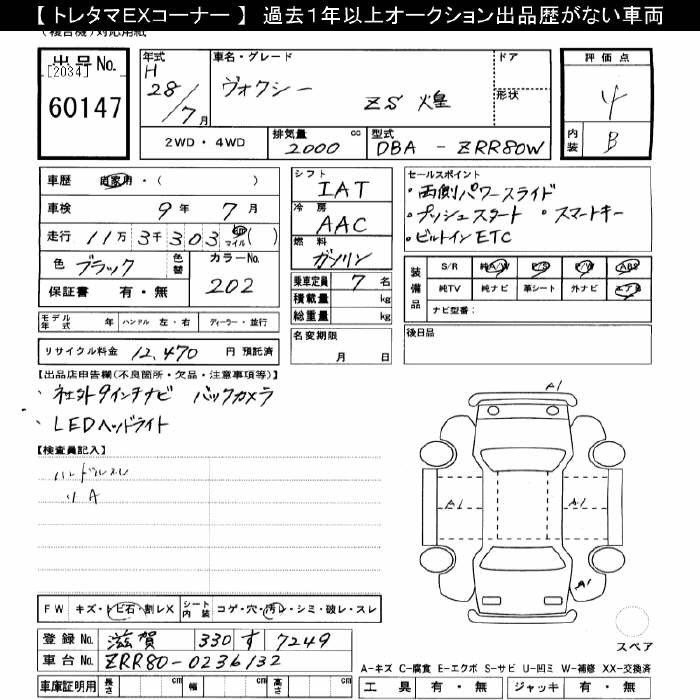 【 トレタマEXコーナー 】 過去1年以上オークション出品歴がない車両
(複合機)対応用紙
出品No.
[2034]
60147
年式 H 28/7月
車名・グレード ヴォクシー ZS 煌
ドア
形状
評価点 4
内装 B
2WD・4WD
排気量 2000 cc
型式 DBA - ZRR80W
車歴 自家用・( )
車検 9年 7月
走行 11万 3千 303 km マイル ( )
色 ブラック 色替
カラーNo. 202
保証書 有・無
シフト IAT
冷房 AAC
燃料 ガソリン
乗車定員 7 名
積載量 kg
総重量 kg
名変期限 月 日
セールスポイント
・両側パワースライド
・プッシュスタート ・スマートキー
・ビルトインETC
装備品
S/R 純A/W P/S P/W ABS
純TV 純ナビ 革シート 外ナビ エアB
ナビ型番：
後日品
モデル年式 年 ハンドル 左・右 ディーラー・並行
リサイクル料金 12,470 円 預託済
【出品店申告欄(不良箇所・欠品・注意事項等)】
、社外9インチナビ バックカメラ
、LEDヘッドライト
【検査員記入】
ハンドルスレ
〃 A
A1
A1
A1
A1
FW キズ・トビ石・割レX シート内装 コゲ・穴・汚レ・シミ・破レ・スレ
登録No. 滋賀 330 す 7249
車台No. ZRR80-0236132
車庫証明用 長さ cm 幅 cm 高さ cm
スペア
A-キズ C-腐食 E-エクボ S-サビ U-凹ミ W-補修 XX-交換済
工具 有・無 ジャッキ 有・無